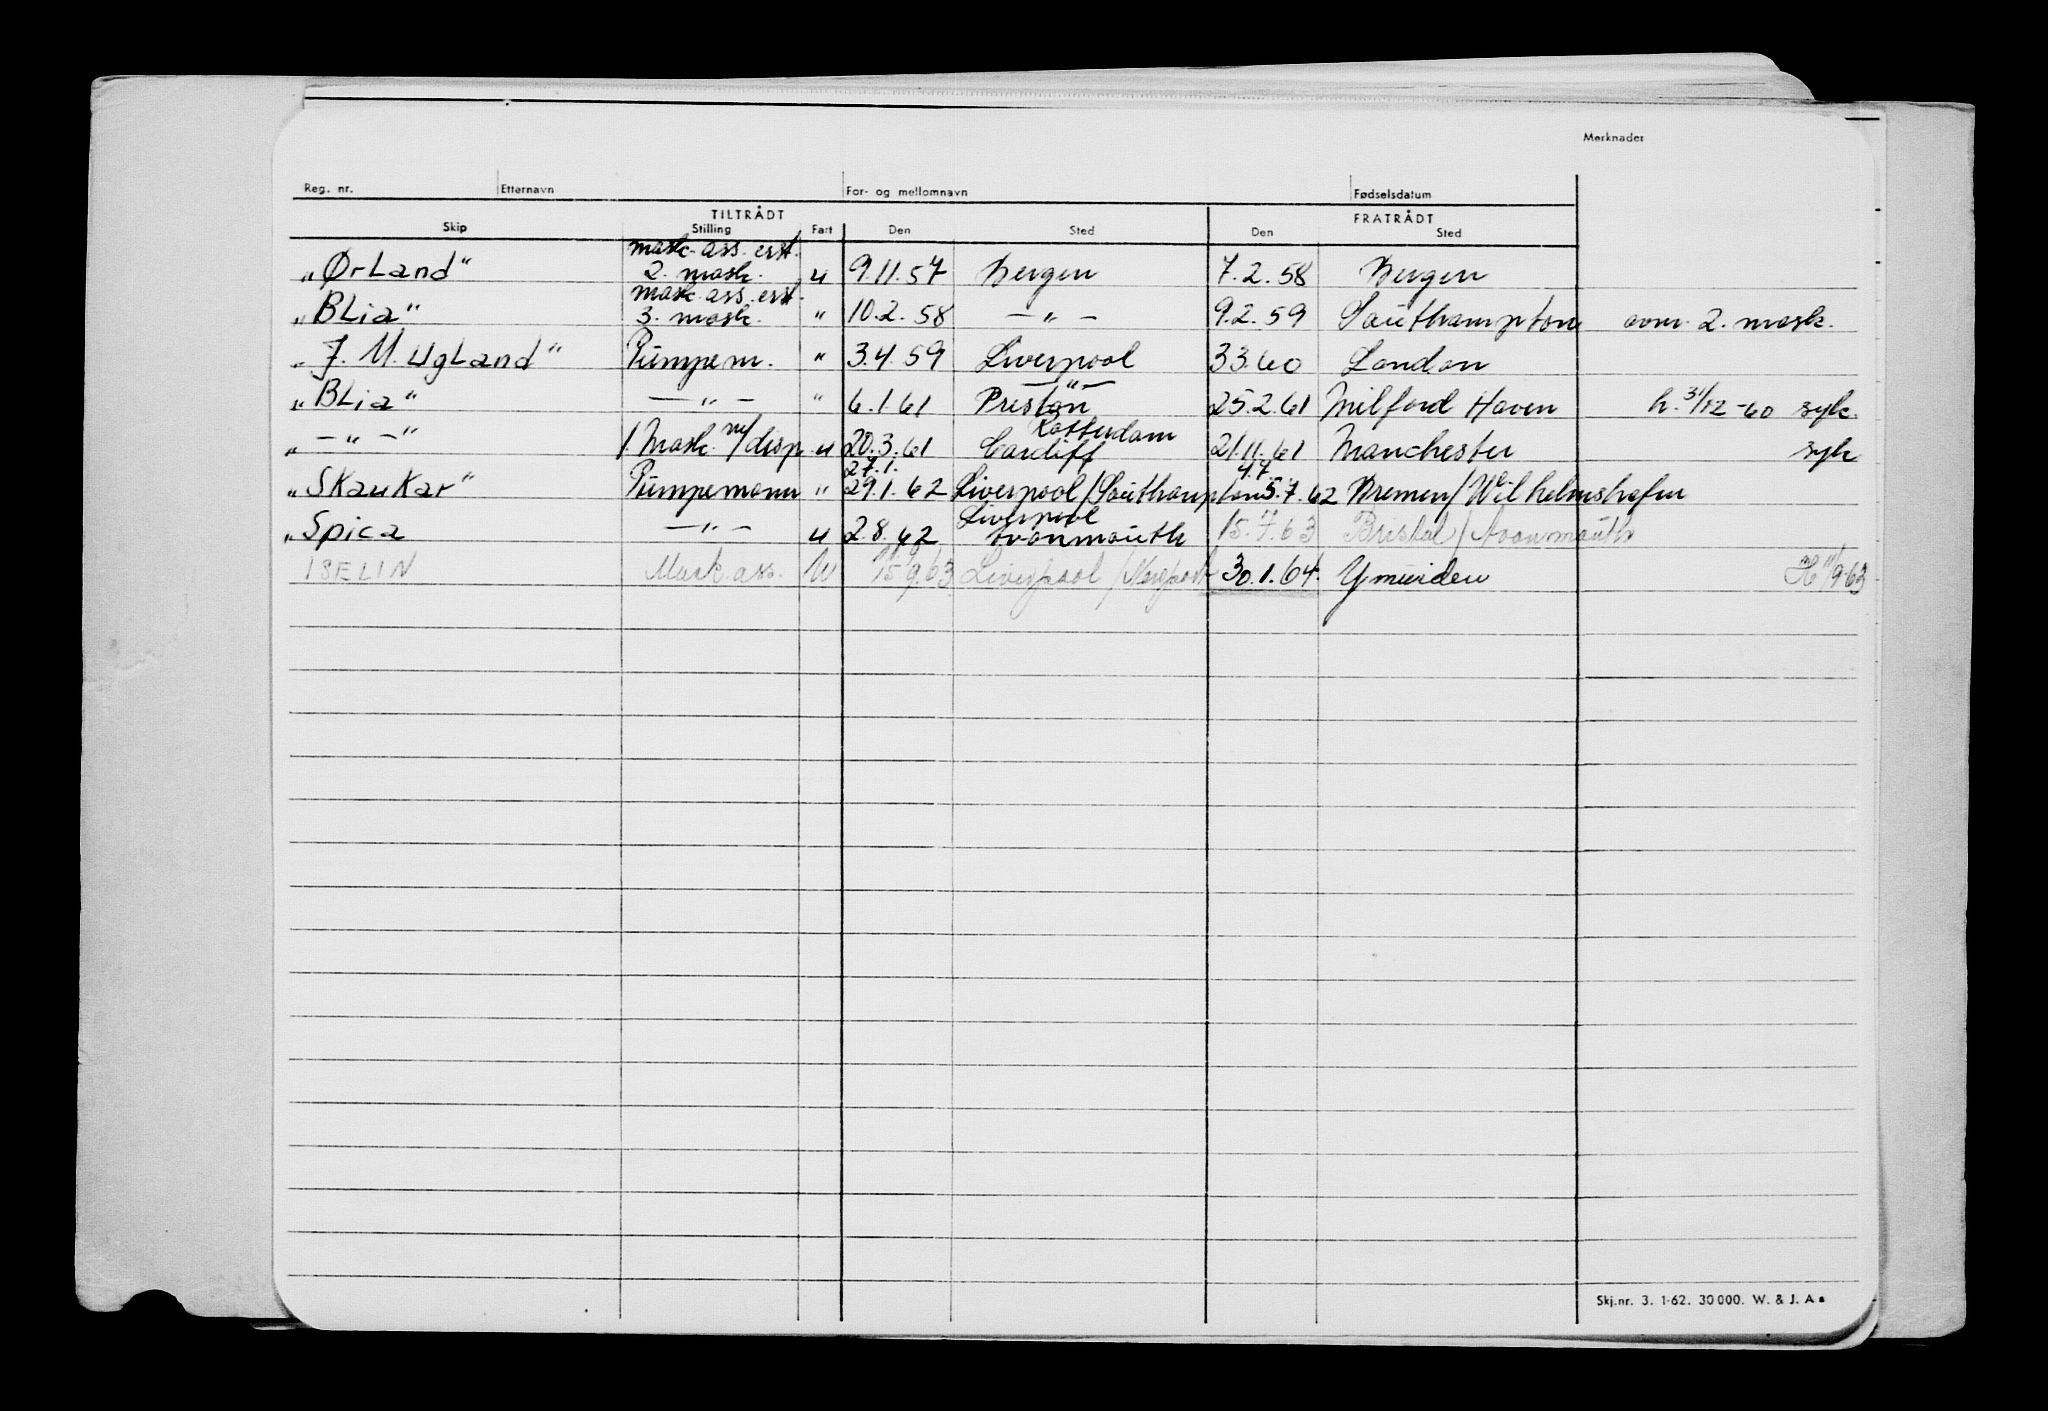 Merknader
Reg. nr. Etternavn For- og mellomnavn Fødselsdatum
TILTRÅDT FRATRÅDT
Skip Stilling Fart Den Sted Den Sted
mask. ass. erst.
„ØrLand" 2. mask. u 9.11.57 Bergen 7.2.58 Bergen
mask. ass. erst.
„BLia" 3. mask. " 10.2.58 — " — 9.2.59 Southampton avm. 2. mask.
„J. M. UgLand" Pumpem. " 3.4.59 Liverpool 3.3.60 London
— " —
„BLia" — " — " 6.1.61 Preston 25.2.61 Milford Haven h. 31/12-60 syk.
Rotterdam
„— " —" 1. Mask. m/disp u 20.3.61 Cardiff 21.11.61 Manchester syk
27.1. 4.7
„SKauKar" Pumpemann " 29.1.62 Liverpool/Southampton 5.7.62 Bremen/Wilhelmshafen
Liverpool
„Spica — " — u 2.8.62 Avonmouth 15.7.63 Bristol/Avonmouth
ISELIN Mask. ass. U 15 9.63 Liverpool/Newport 30.1.64. Ymuiden H 11/9-63
Skj.nr. 3. 1-62. 30 000. W. & J. A s